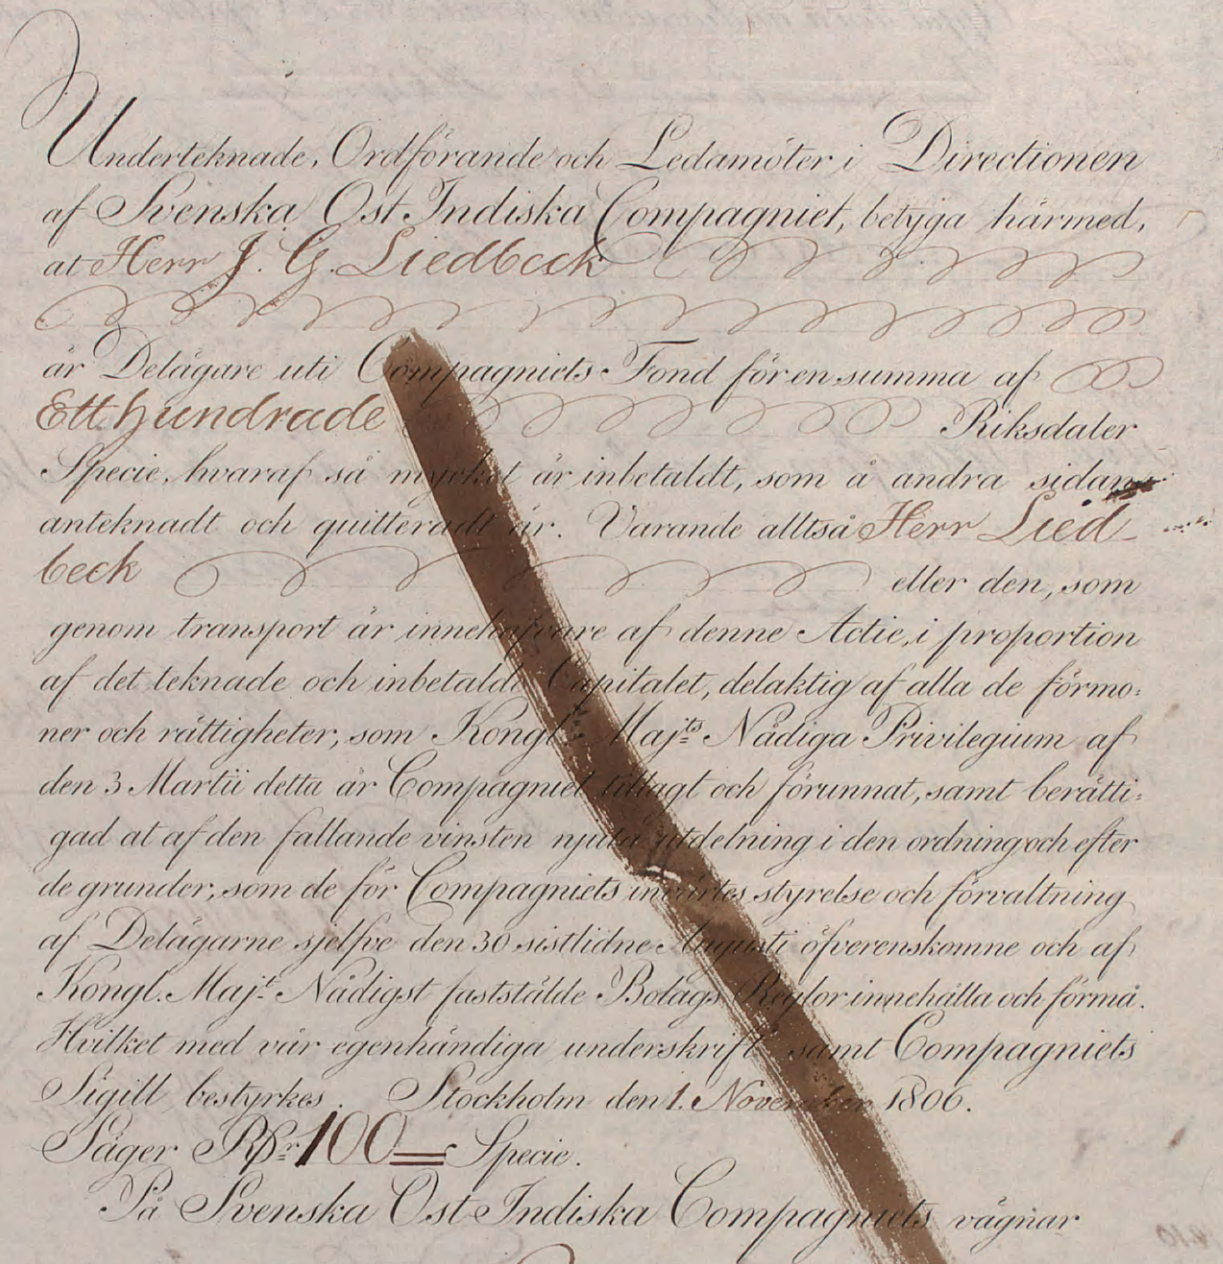 Underteknade, Ordförande och Ledamöter i Directionen
af Svenska Ost Indiska Compagniet, betyga härmed,
at Herr J. G. Liedbeck
är Delägare uti Compagniets Fond för en summa af
Ett hundrade Riksdaler
Specie, hvaraf så mycket är inbetaldt, som å andra sidan
anteknadt och quitteradt är. Varande alltså Herr Lied-
beck eller den, som
genom transport är innehafvare af denne Actie, i proportion
af det teknade och inbetalde Capitalet, delaktig af alla de förmo:
ner och rättigheter, som Kongl. Maj:ts Nådiga Privilegium af
den 3 Martii detta år Compagniet tillagt och förunnat, samt berätti:
gad at af den fallande vinsten njuta utdelning i den ordning och efter
de grunder, som de för Compagniets invärtes styrelse och förvaltning
af Delägarne sjelfve den 30 sistlidne Augusti öfverenskomne och af
Kongl. Maj:t Nådigst fastställde Bolags Reglor innehålla och förmå.
Hvilket med vår egenhändiga underskrift samt Compagniets
Sigill bestyrkes. Stockholm den 1. November 1806.
Säger Rdr 100 Specie.
På Svenska Ost Indiska Compagniets vägnar